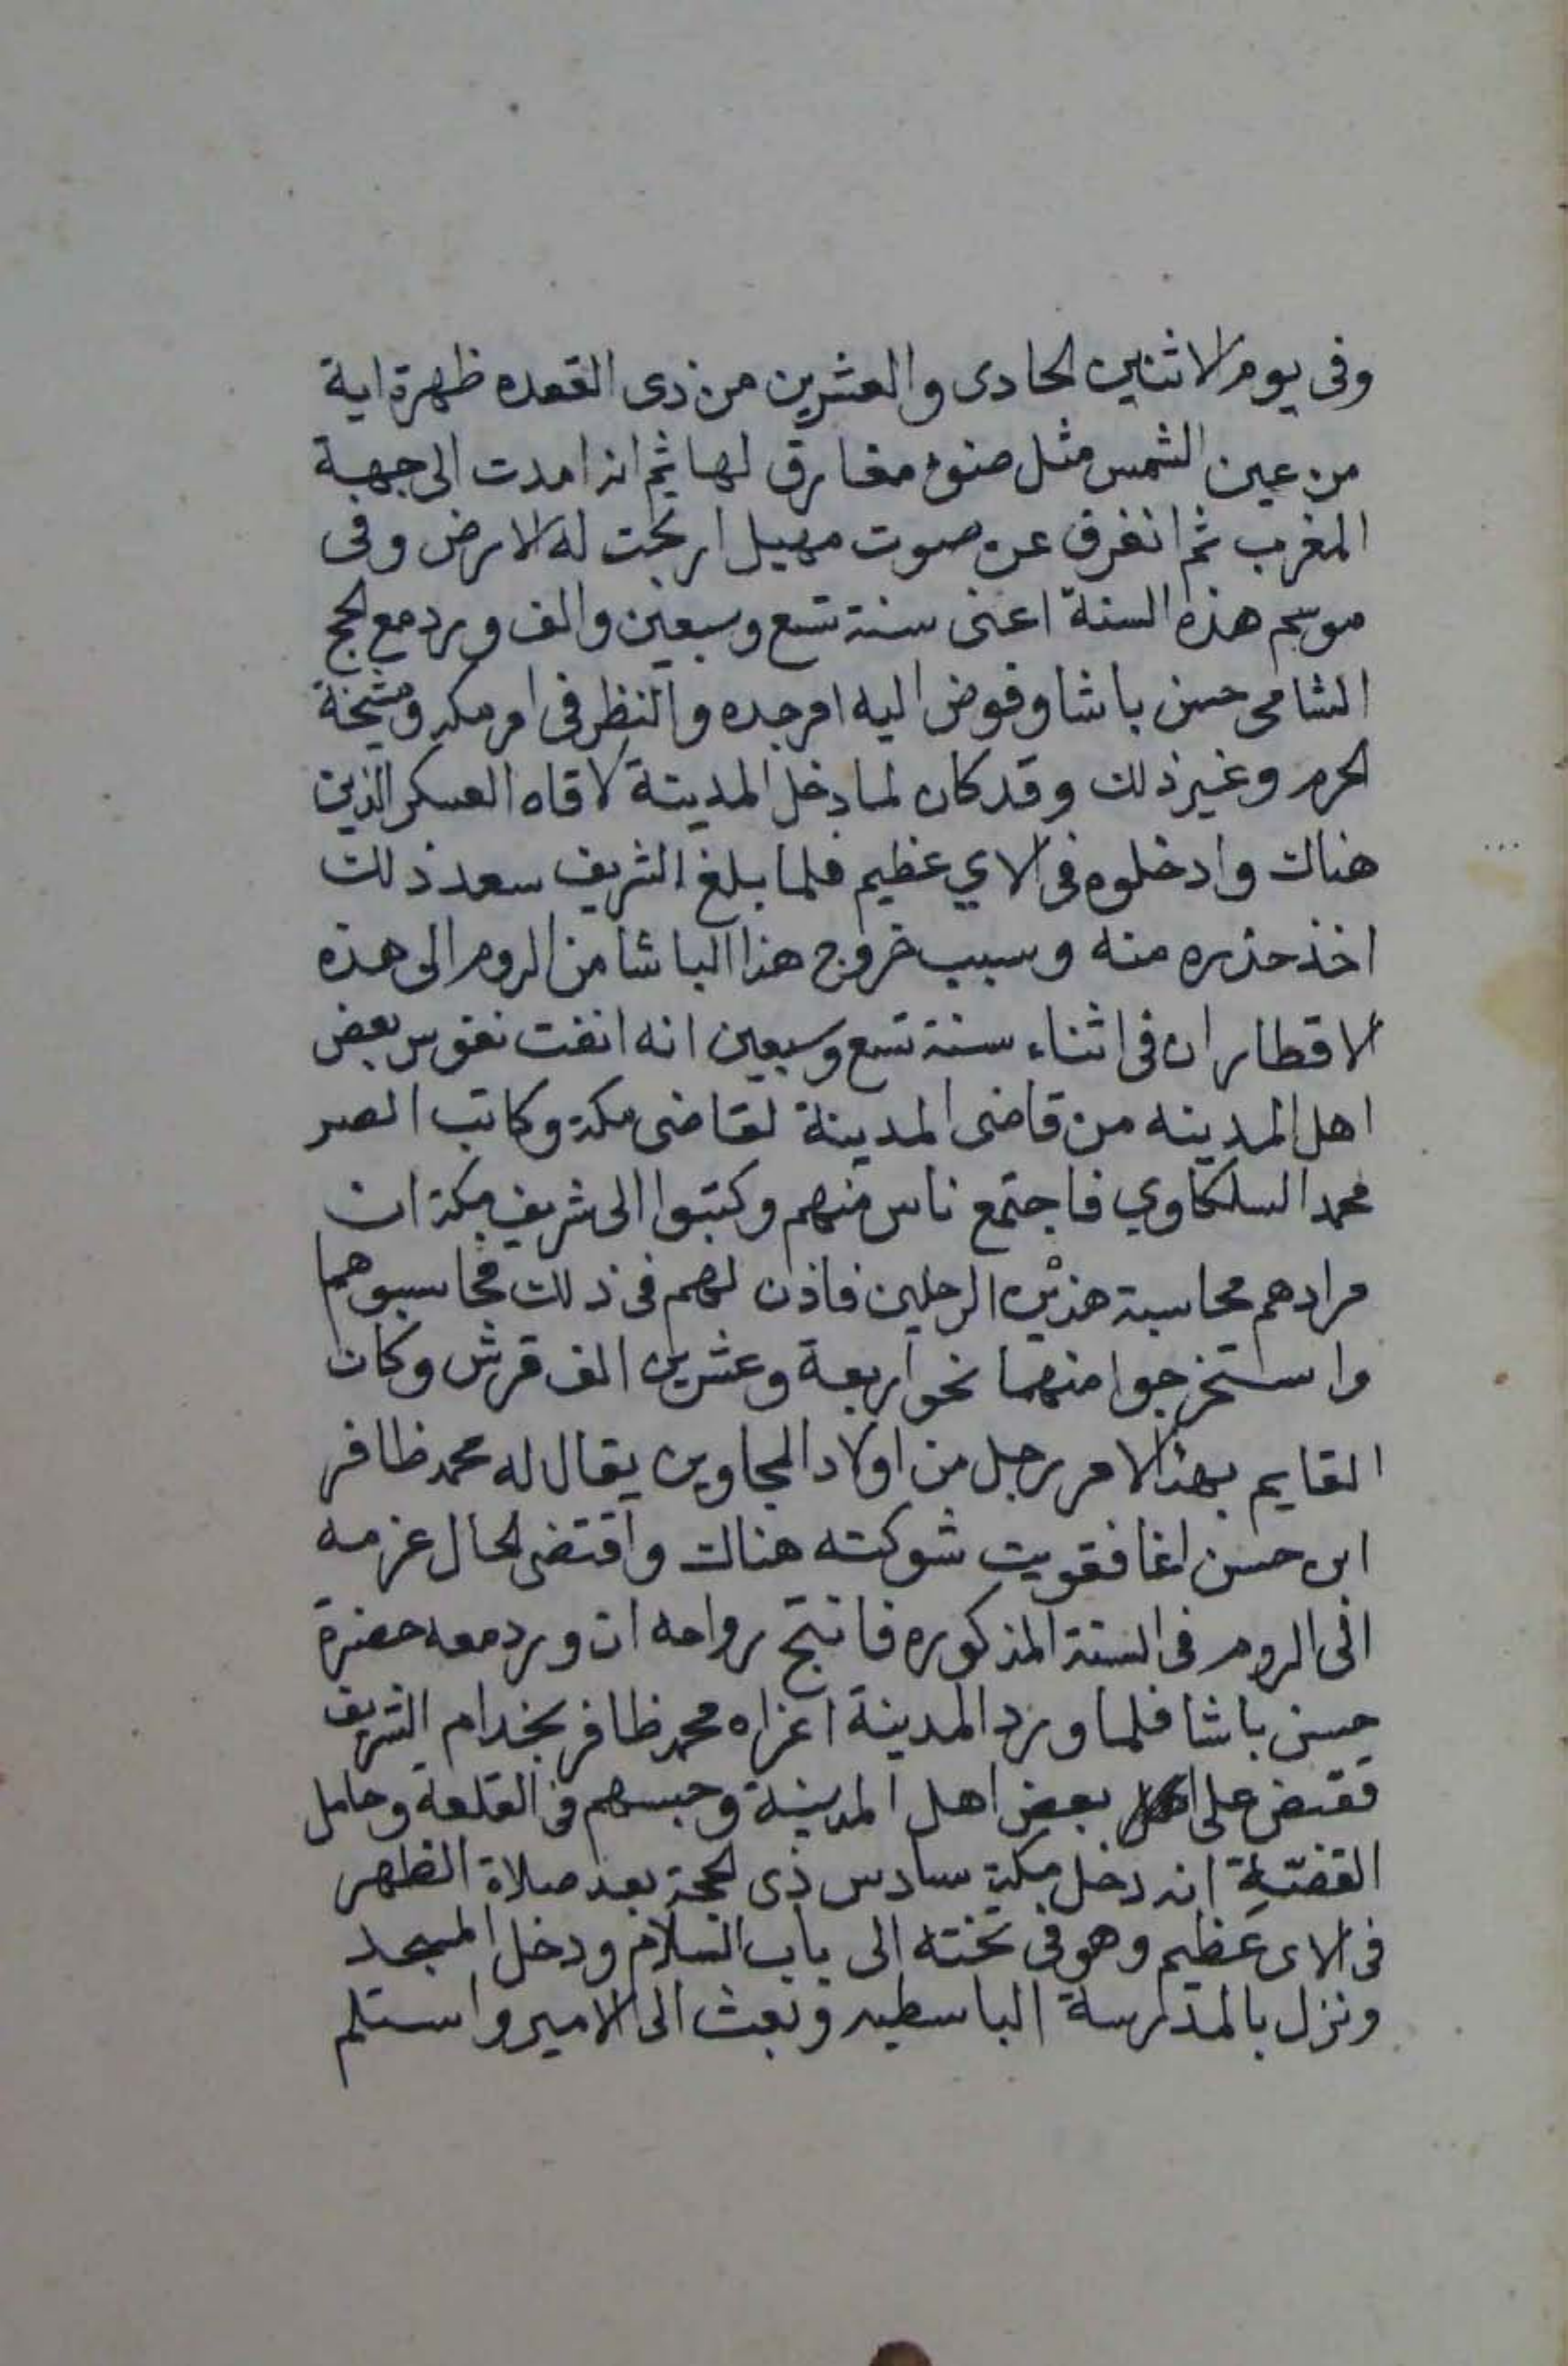 وفى يوم الاثنين الحادى والعشرين من ذى القعده ظهرة اية
من عين الشمس مثل ضوء مفارق لها ثم انه امدت الى جهة
المغرب ثم انفرق عن صوت مهيل ارتجت له الارض وفى
موسم هذه السنة اعنى سنة تسع وسبعين والف ورد مع الحج
الشامى حسن باشا وفوض اليه امر جده والنظر فى امر مكه ومشيخة
الحرم وغير ذلك وقد كان لما دخل المدينة لاقاه العسكر الذين
هناك وادخلوه فى الاي عظيم فلما بلغ الشريف سعد ذلك
اخذ حذره منه وسبب خروج هذا الباشا من الروم الى هذه
الاقطار ان فى اثناء سنة تسع وسبعين انه انفت نفوس بعض
اهل المدينه من قاضى المدينة لقاضى مكة وكاتب الصر
محمد السلكاوي فاجتمع ناس منهم وكتبوا الى شريف مكة ان
مرادهم محاسبة هذين الرجلين فاذن لهم فى ذلك فحاسبوهما
واستخرجوا منهما نحو اربعة وعشرين الف قرش وكان
القايم بهذا الامر رجل من اولاد المجاوين يقال له محمد ظافر
ابن حسن اغا فقويت شوكته هناك واقتضى الحال عزمه
الى الروم فى السنة المذكوره فانتج رواحه ان ورد معه حضرة
حسن باشا فلما ورد المدينة اغراه محمد ظافر بخدام الشريف
فقبض على بعض اهل المدينة وحبسهم فى القلعة وحامل
القضية انه دخل مكة سادس ذى الحجة بعد صلاة الظهر
فى الاى عظيم وهو فى تخته الى باب السلام ودخل المسجد
ونزل بالمدرسة الباسطيه وبعث الى الامير واستلم